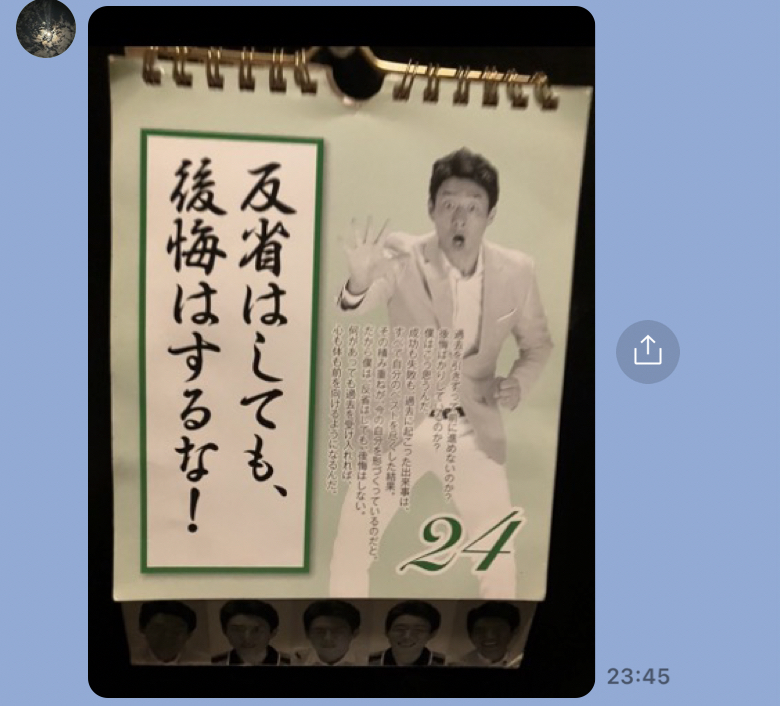 反省はしても、
後悔はするな!
過去を引きずって前に進めないのか?
後悔ばかりしているのか?
僕はこう思うんだ。
成功も失敗も、過去に起こった出来事は、
すべて自分のベストを尽くした結果。
その積み重ねが、今の自分を形づくっているのだと。
だから僕は、反省はしても、後悔はしない。
何があっても過去を受け入れれば、
心も体も前を向けるようになるんだ。
24
23:45